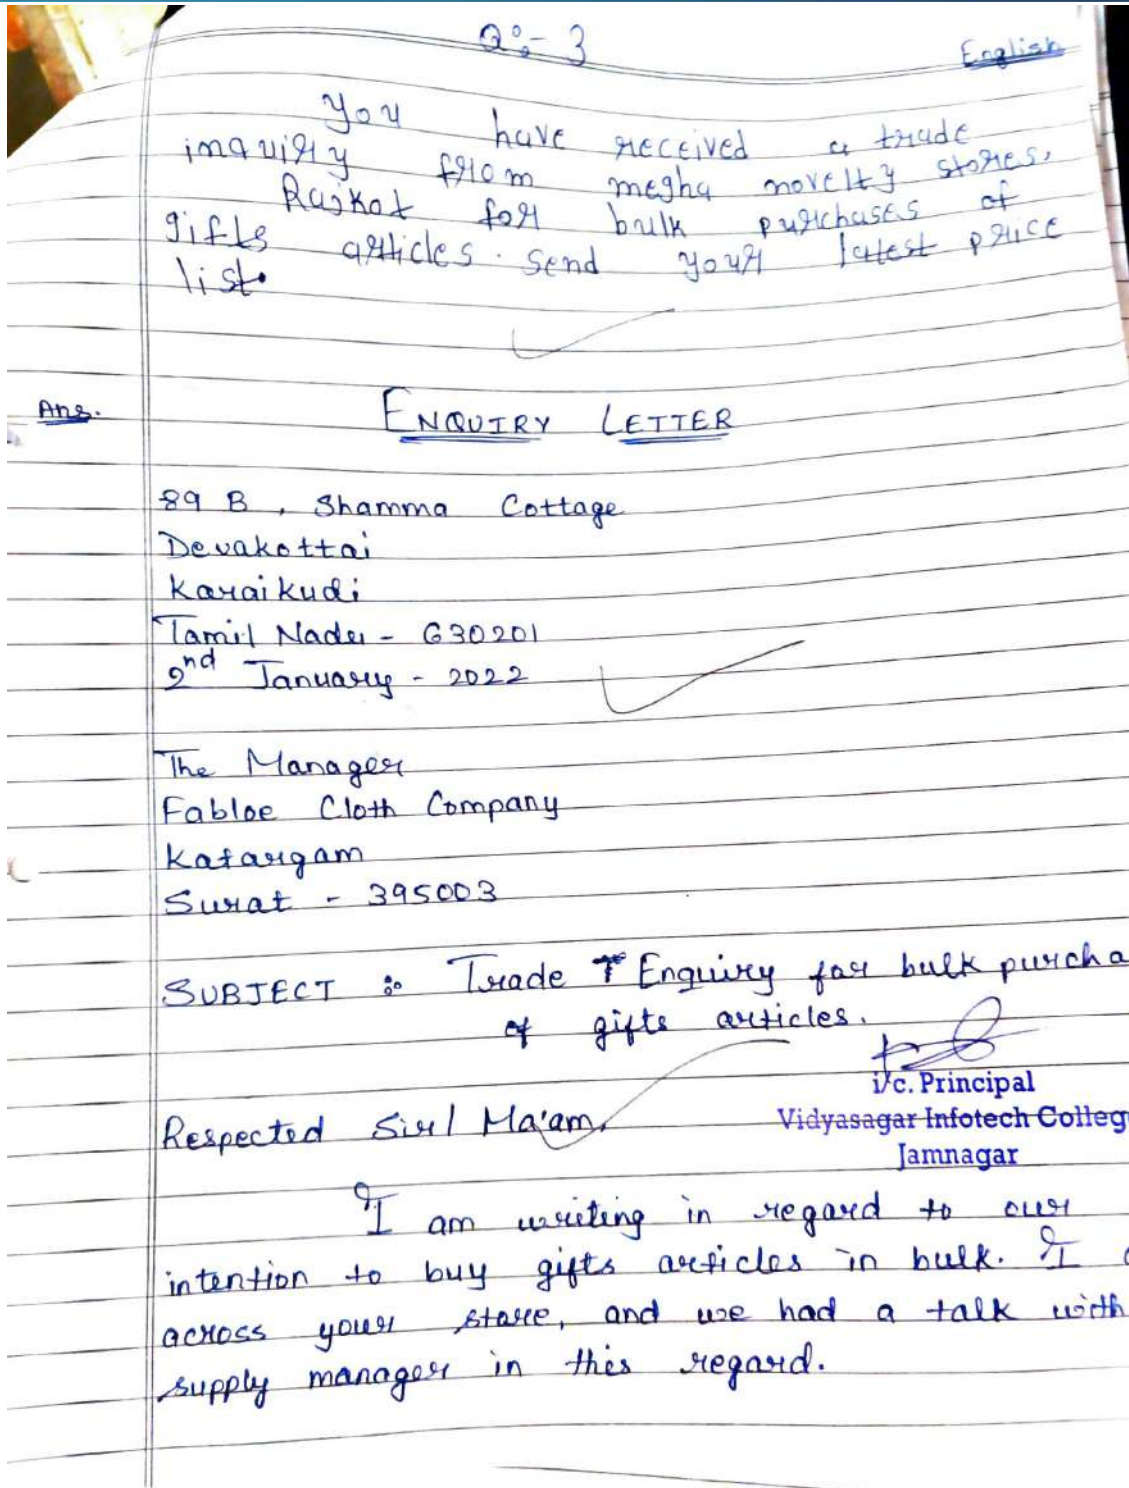 Q:- 3
English
You have received a trade
inquiry from megha novelty stores,
Rajkot for bulk purchases of
gifts articles. send your latest price
list.
Ans.
ENQUIRY LETTER
89 B, Shamma Cottage
Devakottai
Karaikudi
Tamil Nadu - 630201
2nd January - 2022
The Manager
Fabloe Cloth Company
Katargam
Surat - 395003
SUBJECT : Trade Enquiry for bulk purcha
of gifts articles.
i/c. Principal
Vidyasagar Infotech Colleg
Jamnagar
Respected Sir/ Ma'am,
I am writing in regard to our
intention to buy gifts articles in bulk. I
across your store, and we had a talk with
supply manager in this regard.